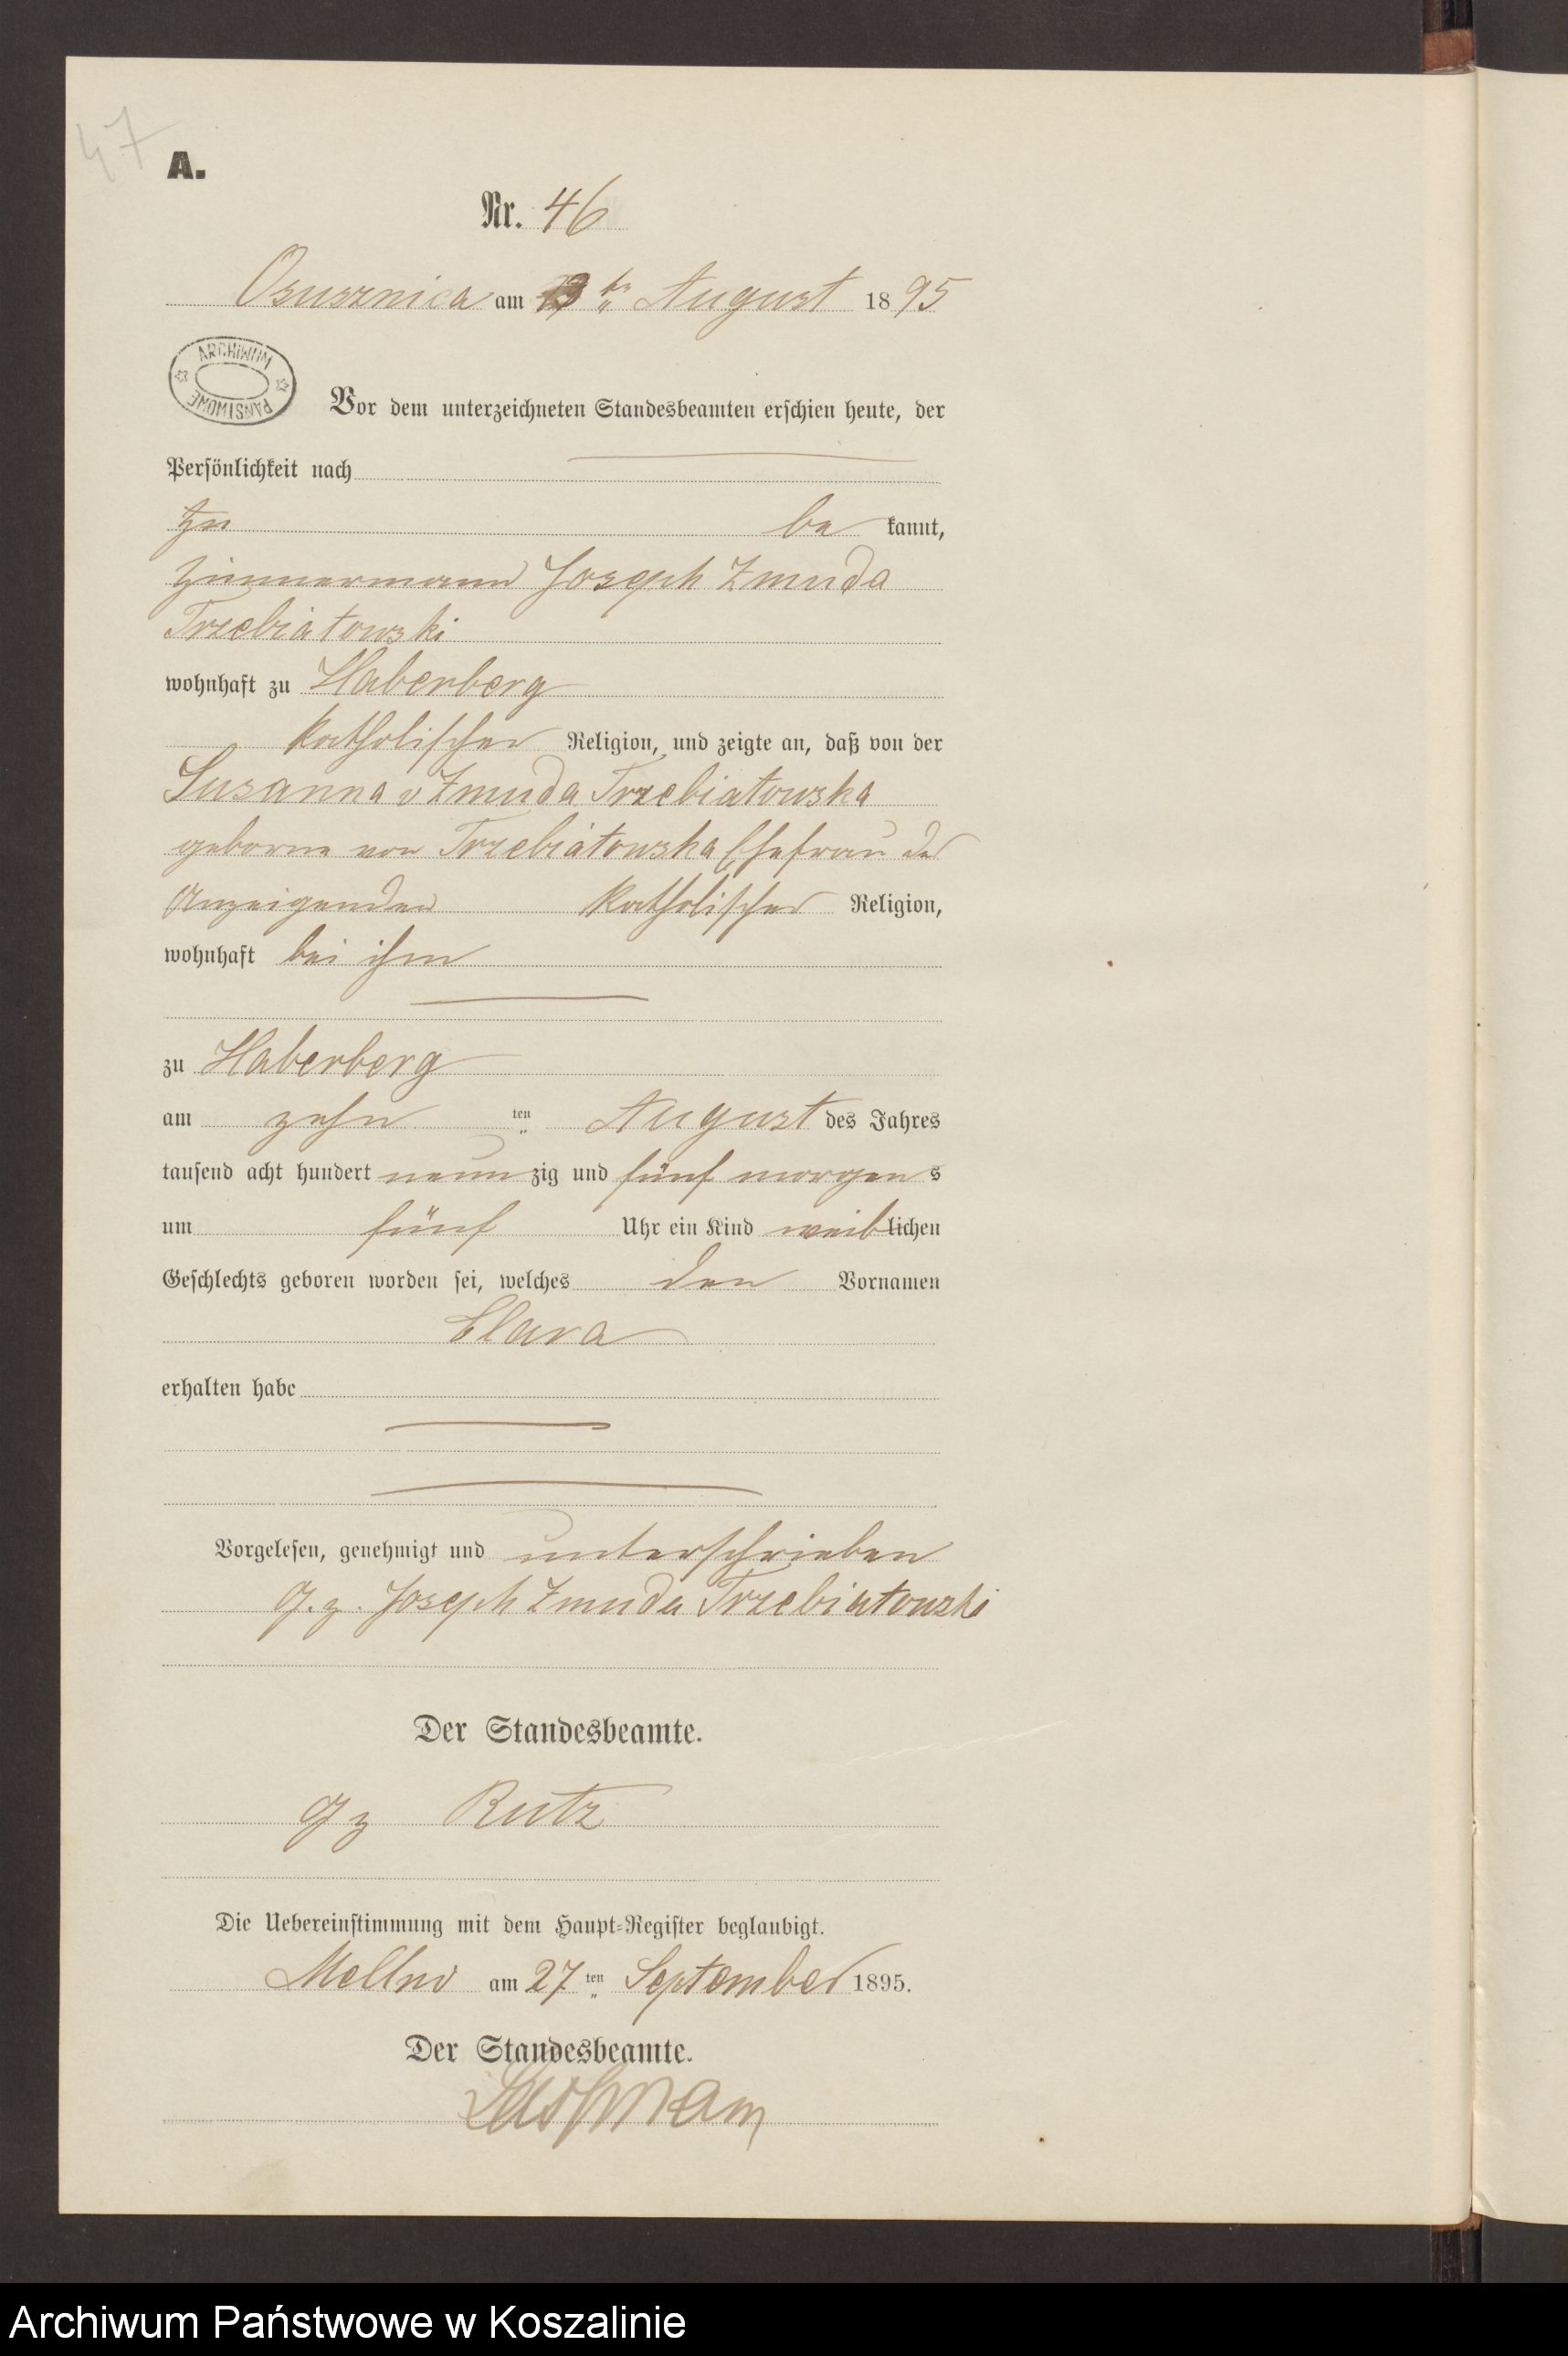 47
A.
Nr. 46
Osusznica am 13 ten August 1895
ARCHIWUM PAŃSTWOWE
Vor dem unterzeichneten Standesbeamten erschien heute, der
Persönlichkeit nach
zu be kannt,
Zimmermann Joseph Zmuda
Trzebiatowski
wohnhaft zu Haberberg
katholischer Religion, und zeigte an, daß von der
Susanna v Zmuda Trzebiatowska
geborne von Trzebiatowska Ehefrau des
Anzeigenden katholischer Religion,
wohnhaft bei ihm
zu Haberberg
am zehn ten August des Jahres
tausend acht hundert neun zig und fünf morgens
um fünf Uhr ein Kind weiblichen
Geschlechts geboren worden sei, welches den Vornamen
Clara
erhalten habe
Vorgelesen, genehmigt und unterschrieben
g. z. Joseph Zmuda Trzebiatowski
Der Standesbeamte.
gz Rutz
Die Uebereinstimmung mit dem Haupt-Register beglaubigt.
Mellno am 27 ten September 1895.
Der Standesbeamte.
Archiwum Państwowe w Koszalinie